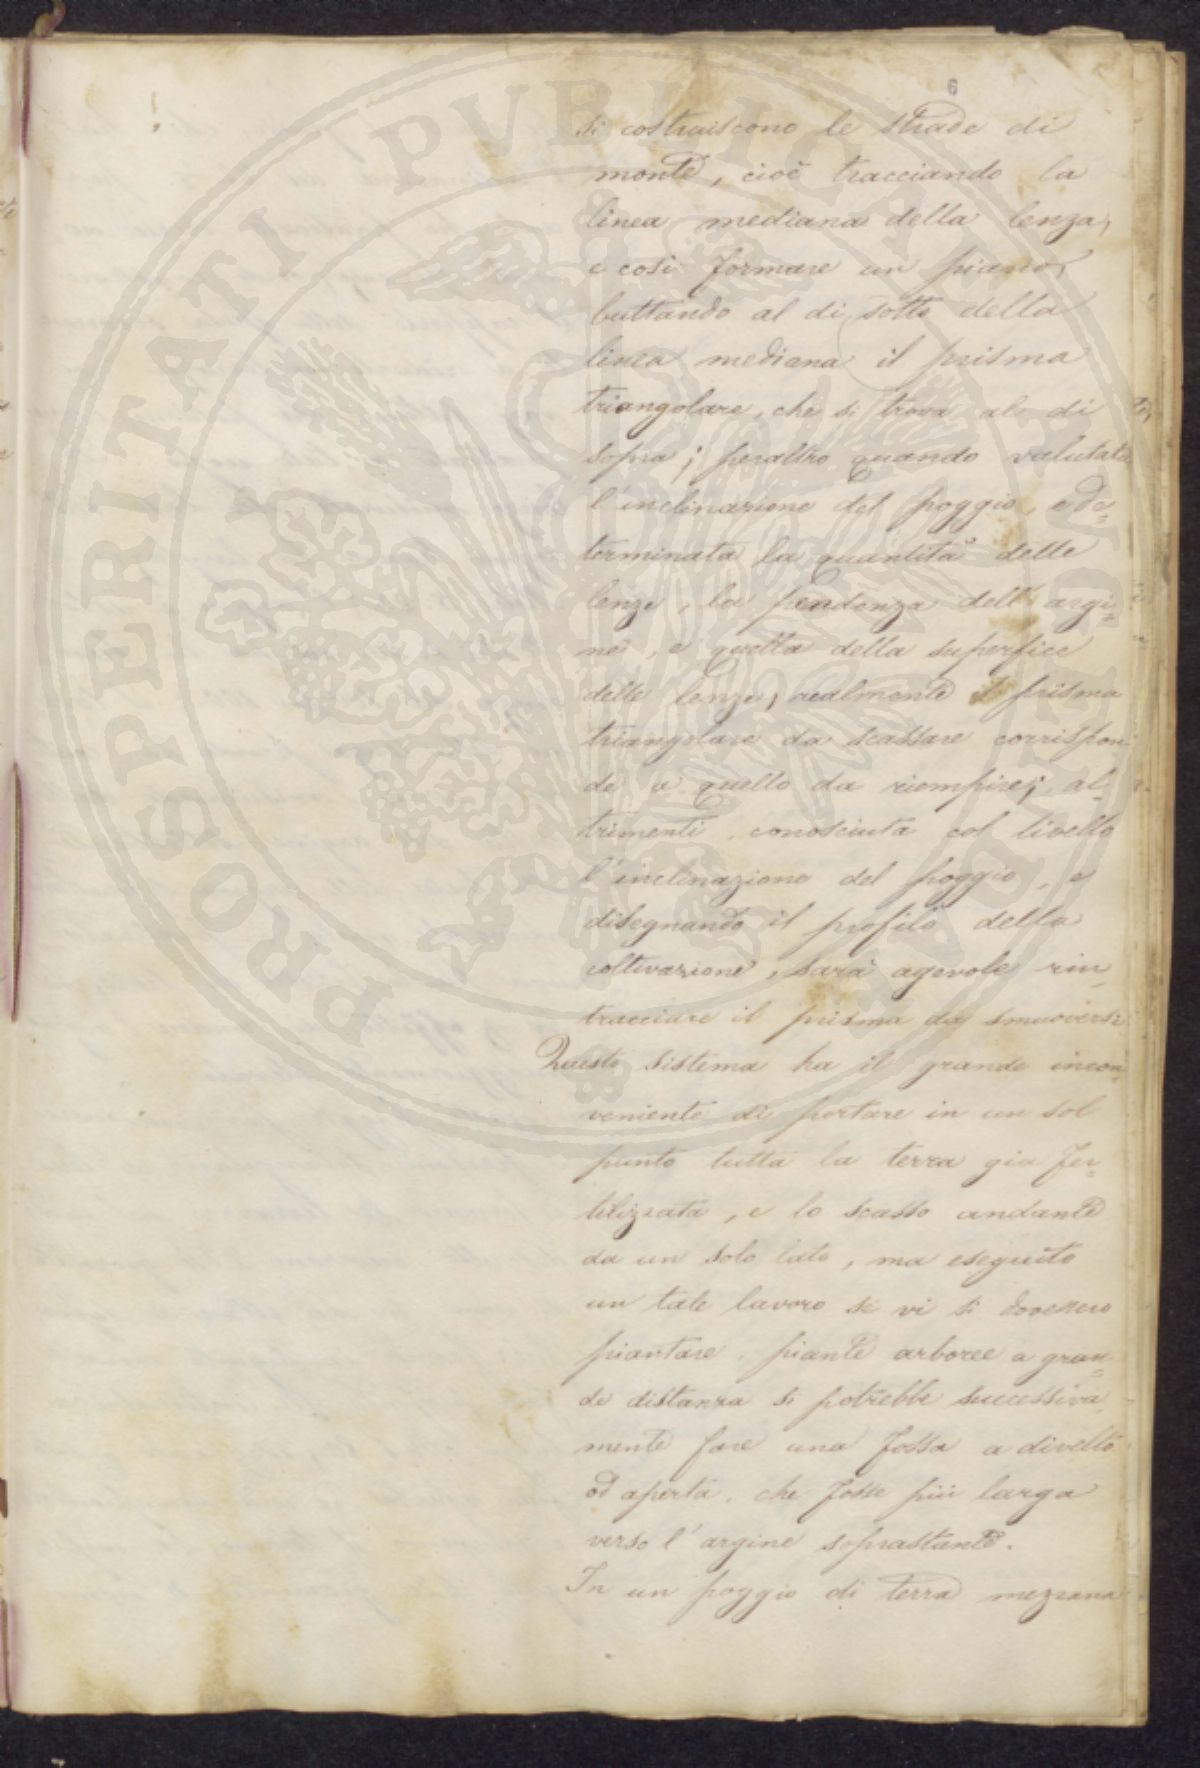 6
si costruiscono le strade di
monte, cioè tracciando la
linea mediana della lenza,
e così formare un piano,
buttando al di sotto della
linea mediana il prisma
triangolare, che si trova al di
sopra; peraltro quando valutata
l'inclinazione del poggio, e de=
terminata la quantità delle
lenze, la pendenza dell'argi=
ne, e quella della superfice
delle lenze, realmente il prisma
triangolare da scassare corrispon
de a quello da riempire; al=
trimenti, conosciuta col livello
l'inclinazione del poggio, e
disegnando il profilo della
coltivazione, sarà agevole rin=
tracciare il prisma da smuoversi
Questo sistema ha il grande incon=
veniente di portare in un sol
punto tutta la terra già fer=
tilizzata, e lo scasso andante
da un solo lato, ma eseguito
un tale lavoro se vi si dovessero
piantare, piante arboree a gran=
de distanza si potrebbe successiva=
mente fare una fossa a divelto
od aperta, che fosse più larga
verso l'argine soprastante.
In un poggio di terra mezzana
PROSPERITATI PVBLICAE AVGENDAE